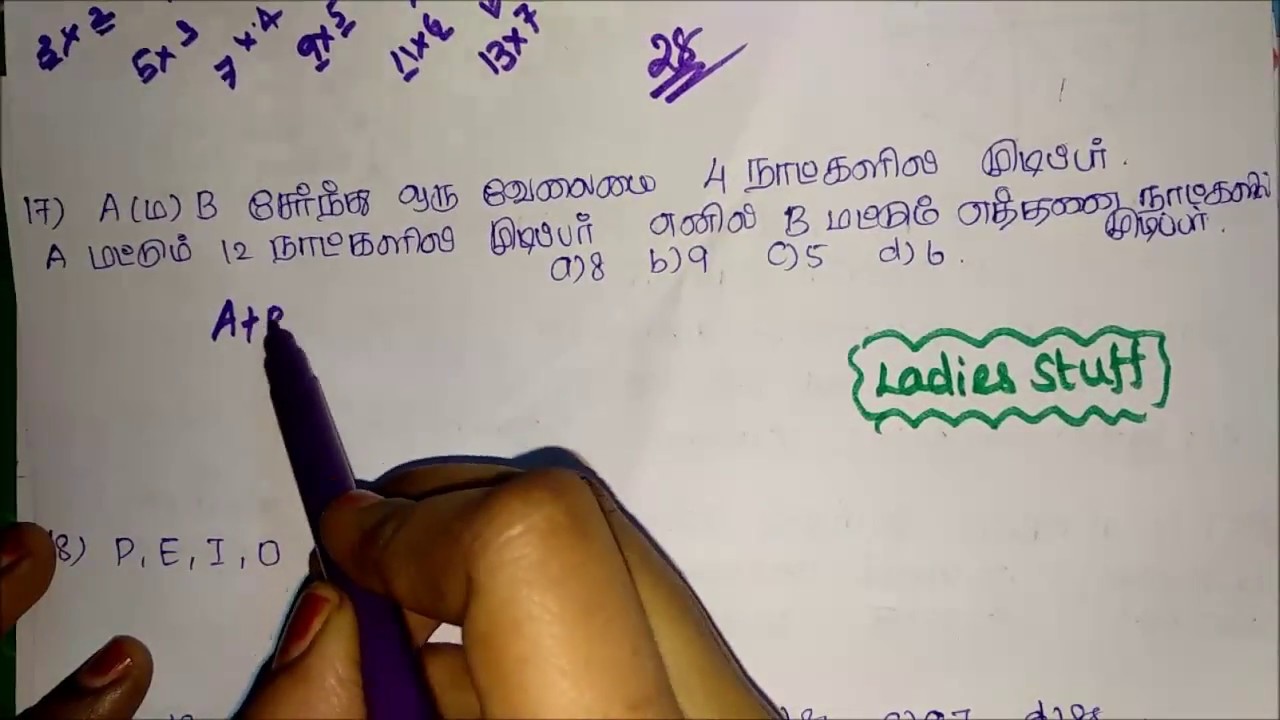 3×2 5×3 7×4 9×5 11×6 13×7 28
17) A (ம) B சேர்ந்து ஒரு வேலையை 4 நாட்களில் முடிப்பர்.
A மட்டும் 12 நாட்களில் முடிப்பர் எனில் B மட்டுமே எத்தனை நாட்களில்
முடிப்பர்.
a) 8 b) 9 c) 5 d) 6.
A+B
Ladies Stuff
8) P, E, I, O